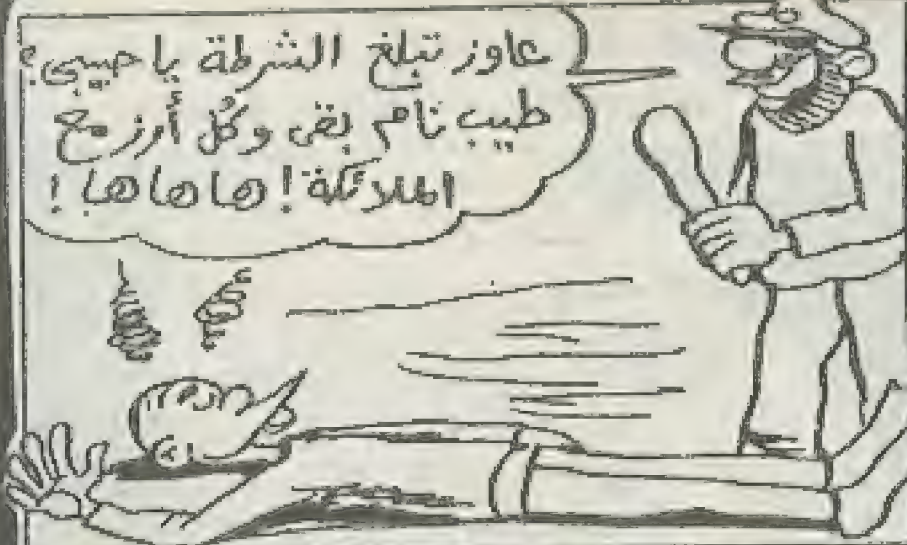 عاوز تبلغ الشرطة يا حبيبى؟
طيب نام بقى وكُل أرز مع
الملائكة! ها ها ها!